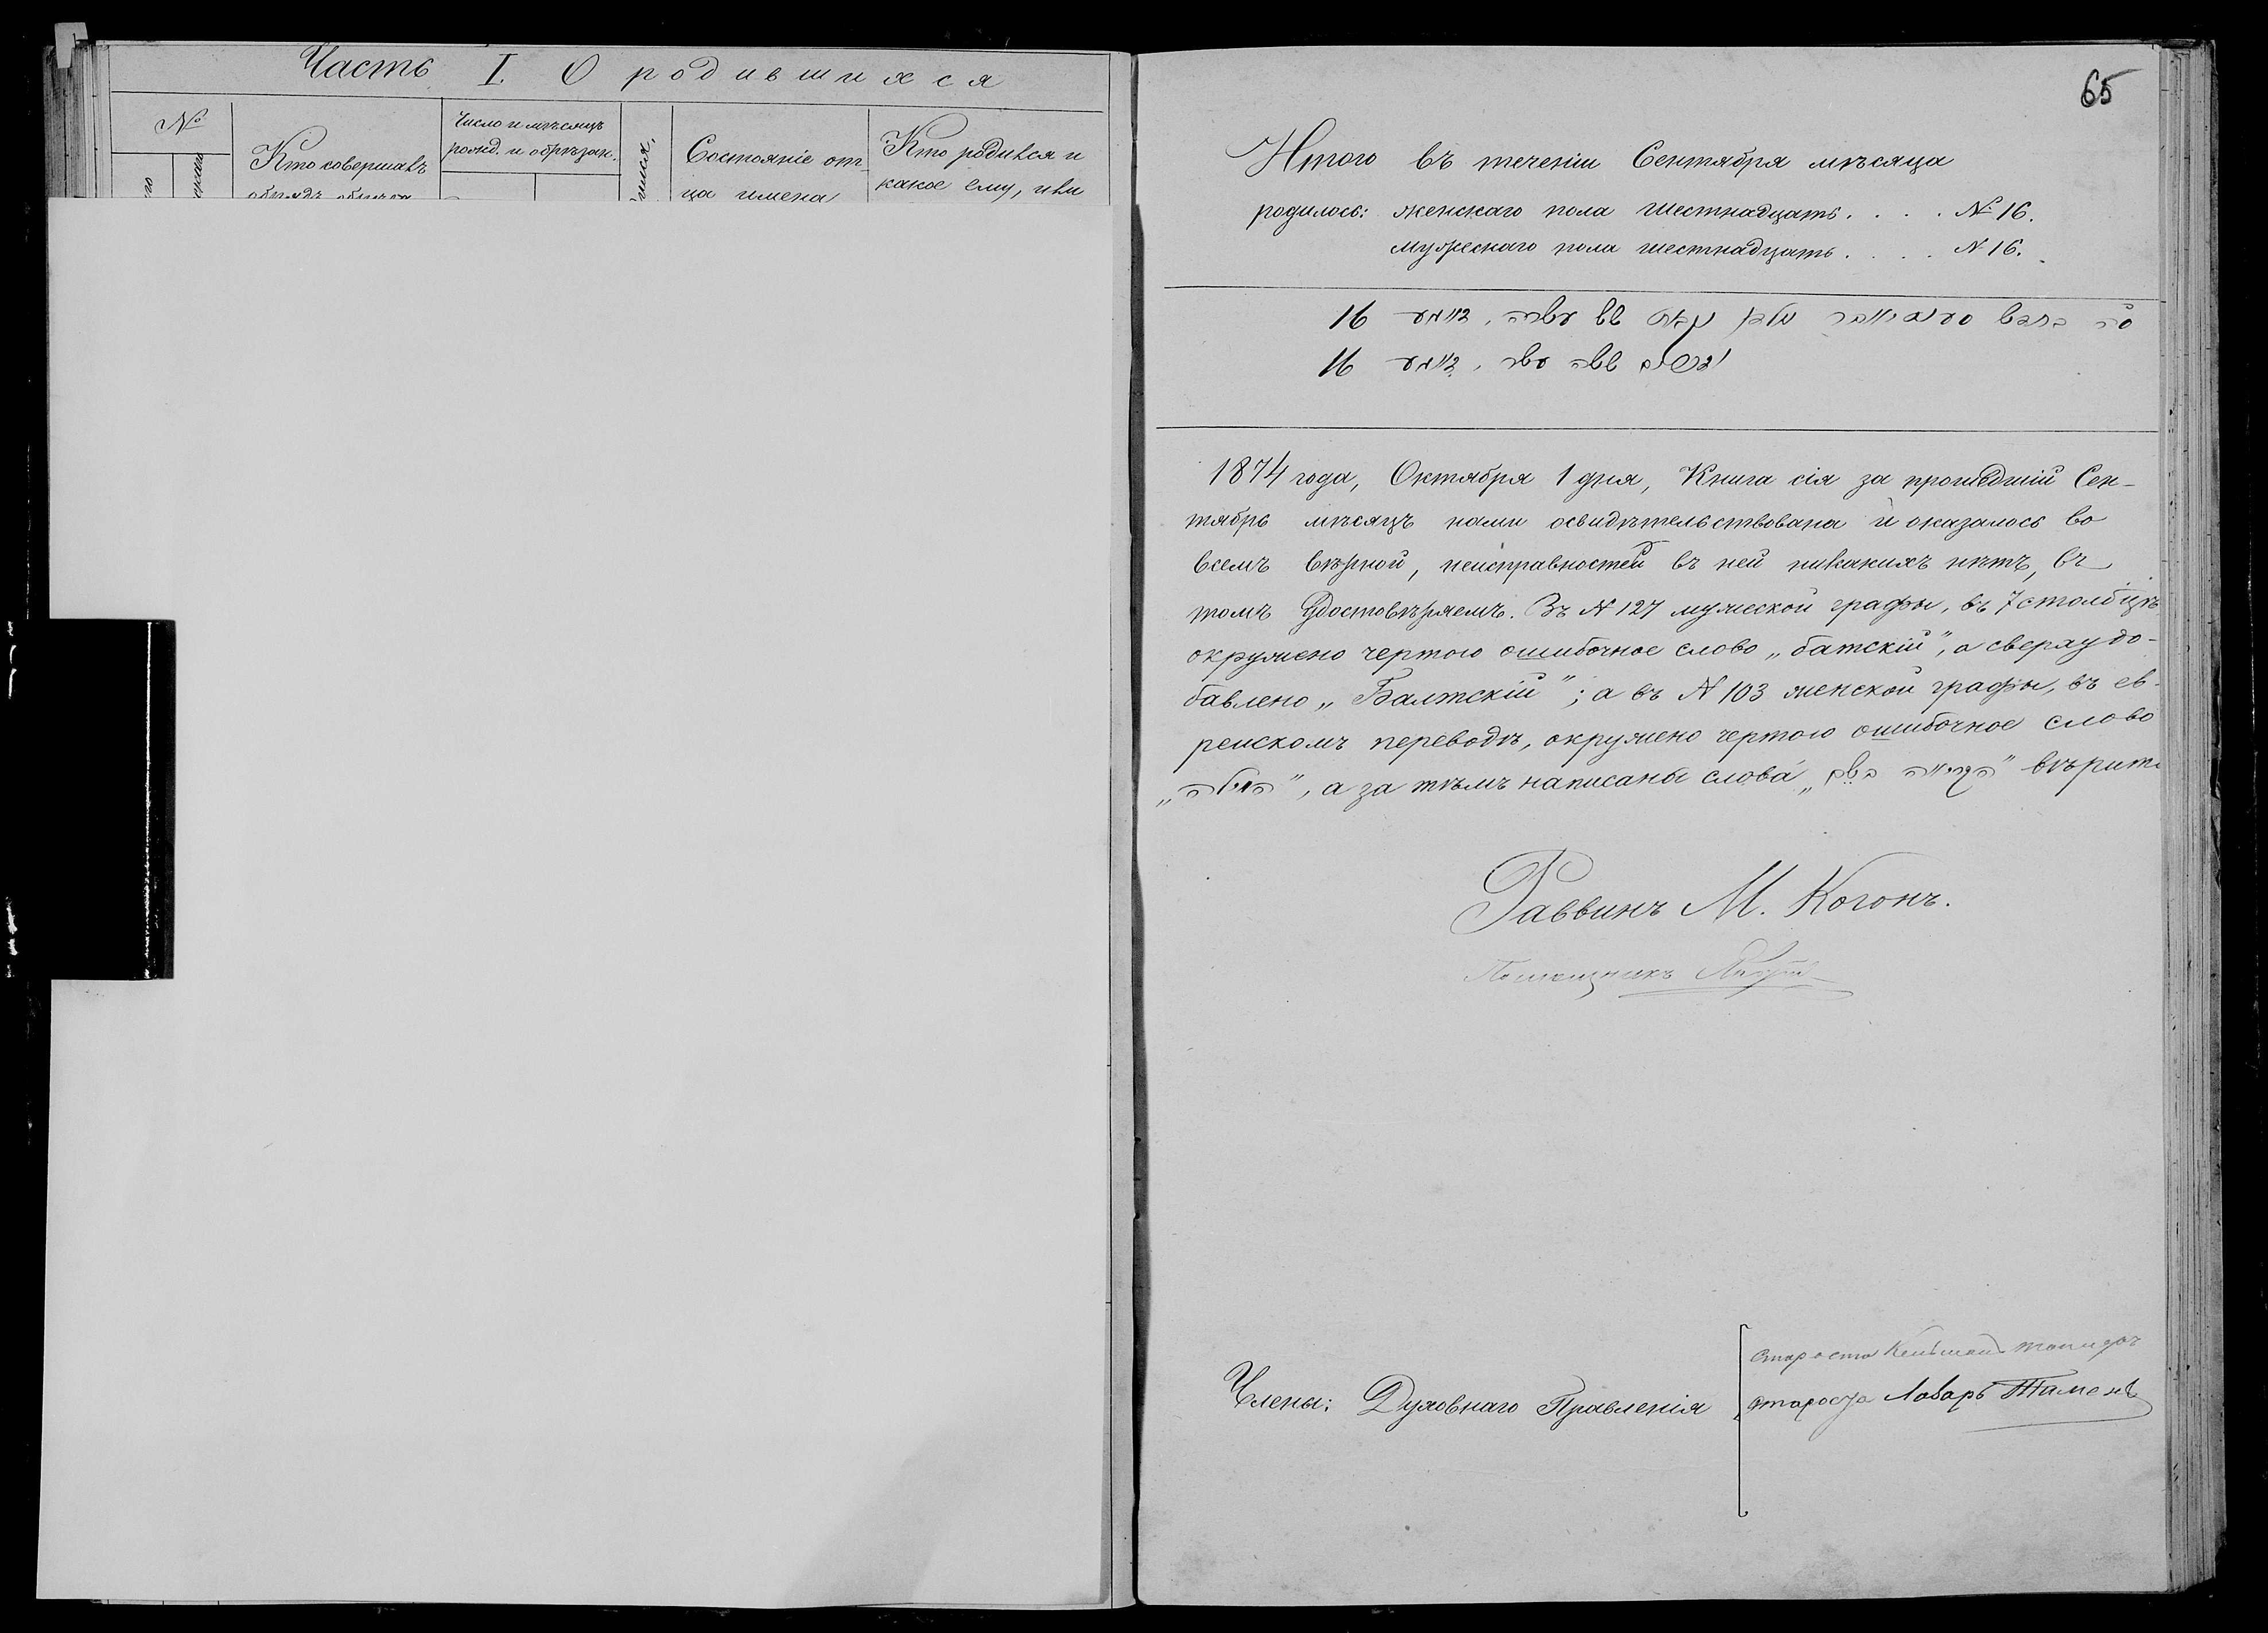 Часть I. О родившихся
№
Кто совершавъ
обрядъ обрѣза
Число и мѣсяцъ
рожд. и обрѣзан.
Состояніе от-
ца имена
Кто родился и
какое ему, или
65
Итого въ теченіи Сентября мѣсяца
родилось: женскаго пола шестнадцать. . . . № 16.
мужескаго пола шестнадцать . . . . № 16.
16
16
1874 года, Октября 1 дня, Книга сія за прошедшій Сен-
тябрь мѣсяцъ нами освидѣтельствована и оказалось во
всемъ вѣрной, неисправностей въ ней никакихъ нѣтъ, въ
томъ удостовѣряемъ. Въ № 127 мужеской графы, въ 7 столбцѣ
окружено чертою ошибочное слово „батскій“, а сверху до-
бавлено „Балтскій“; а въ № 103 женской графы, въ ев-
рейскомъ переводѣ, окружено чертою ошибочное слово
а за тѣмъ написаны слова вѣрить
Раввинъ М. Когонъ.
Помощникъ
Члены: Духовнаго Правленія
староста
староста Лазарь